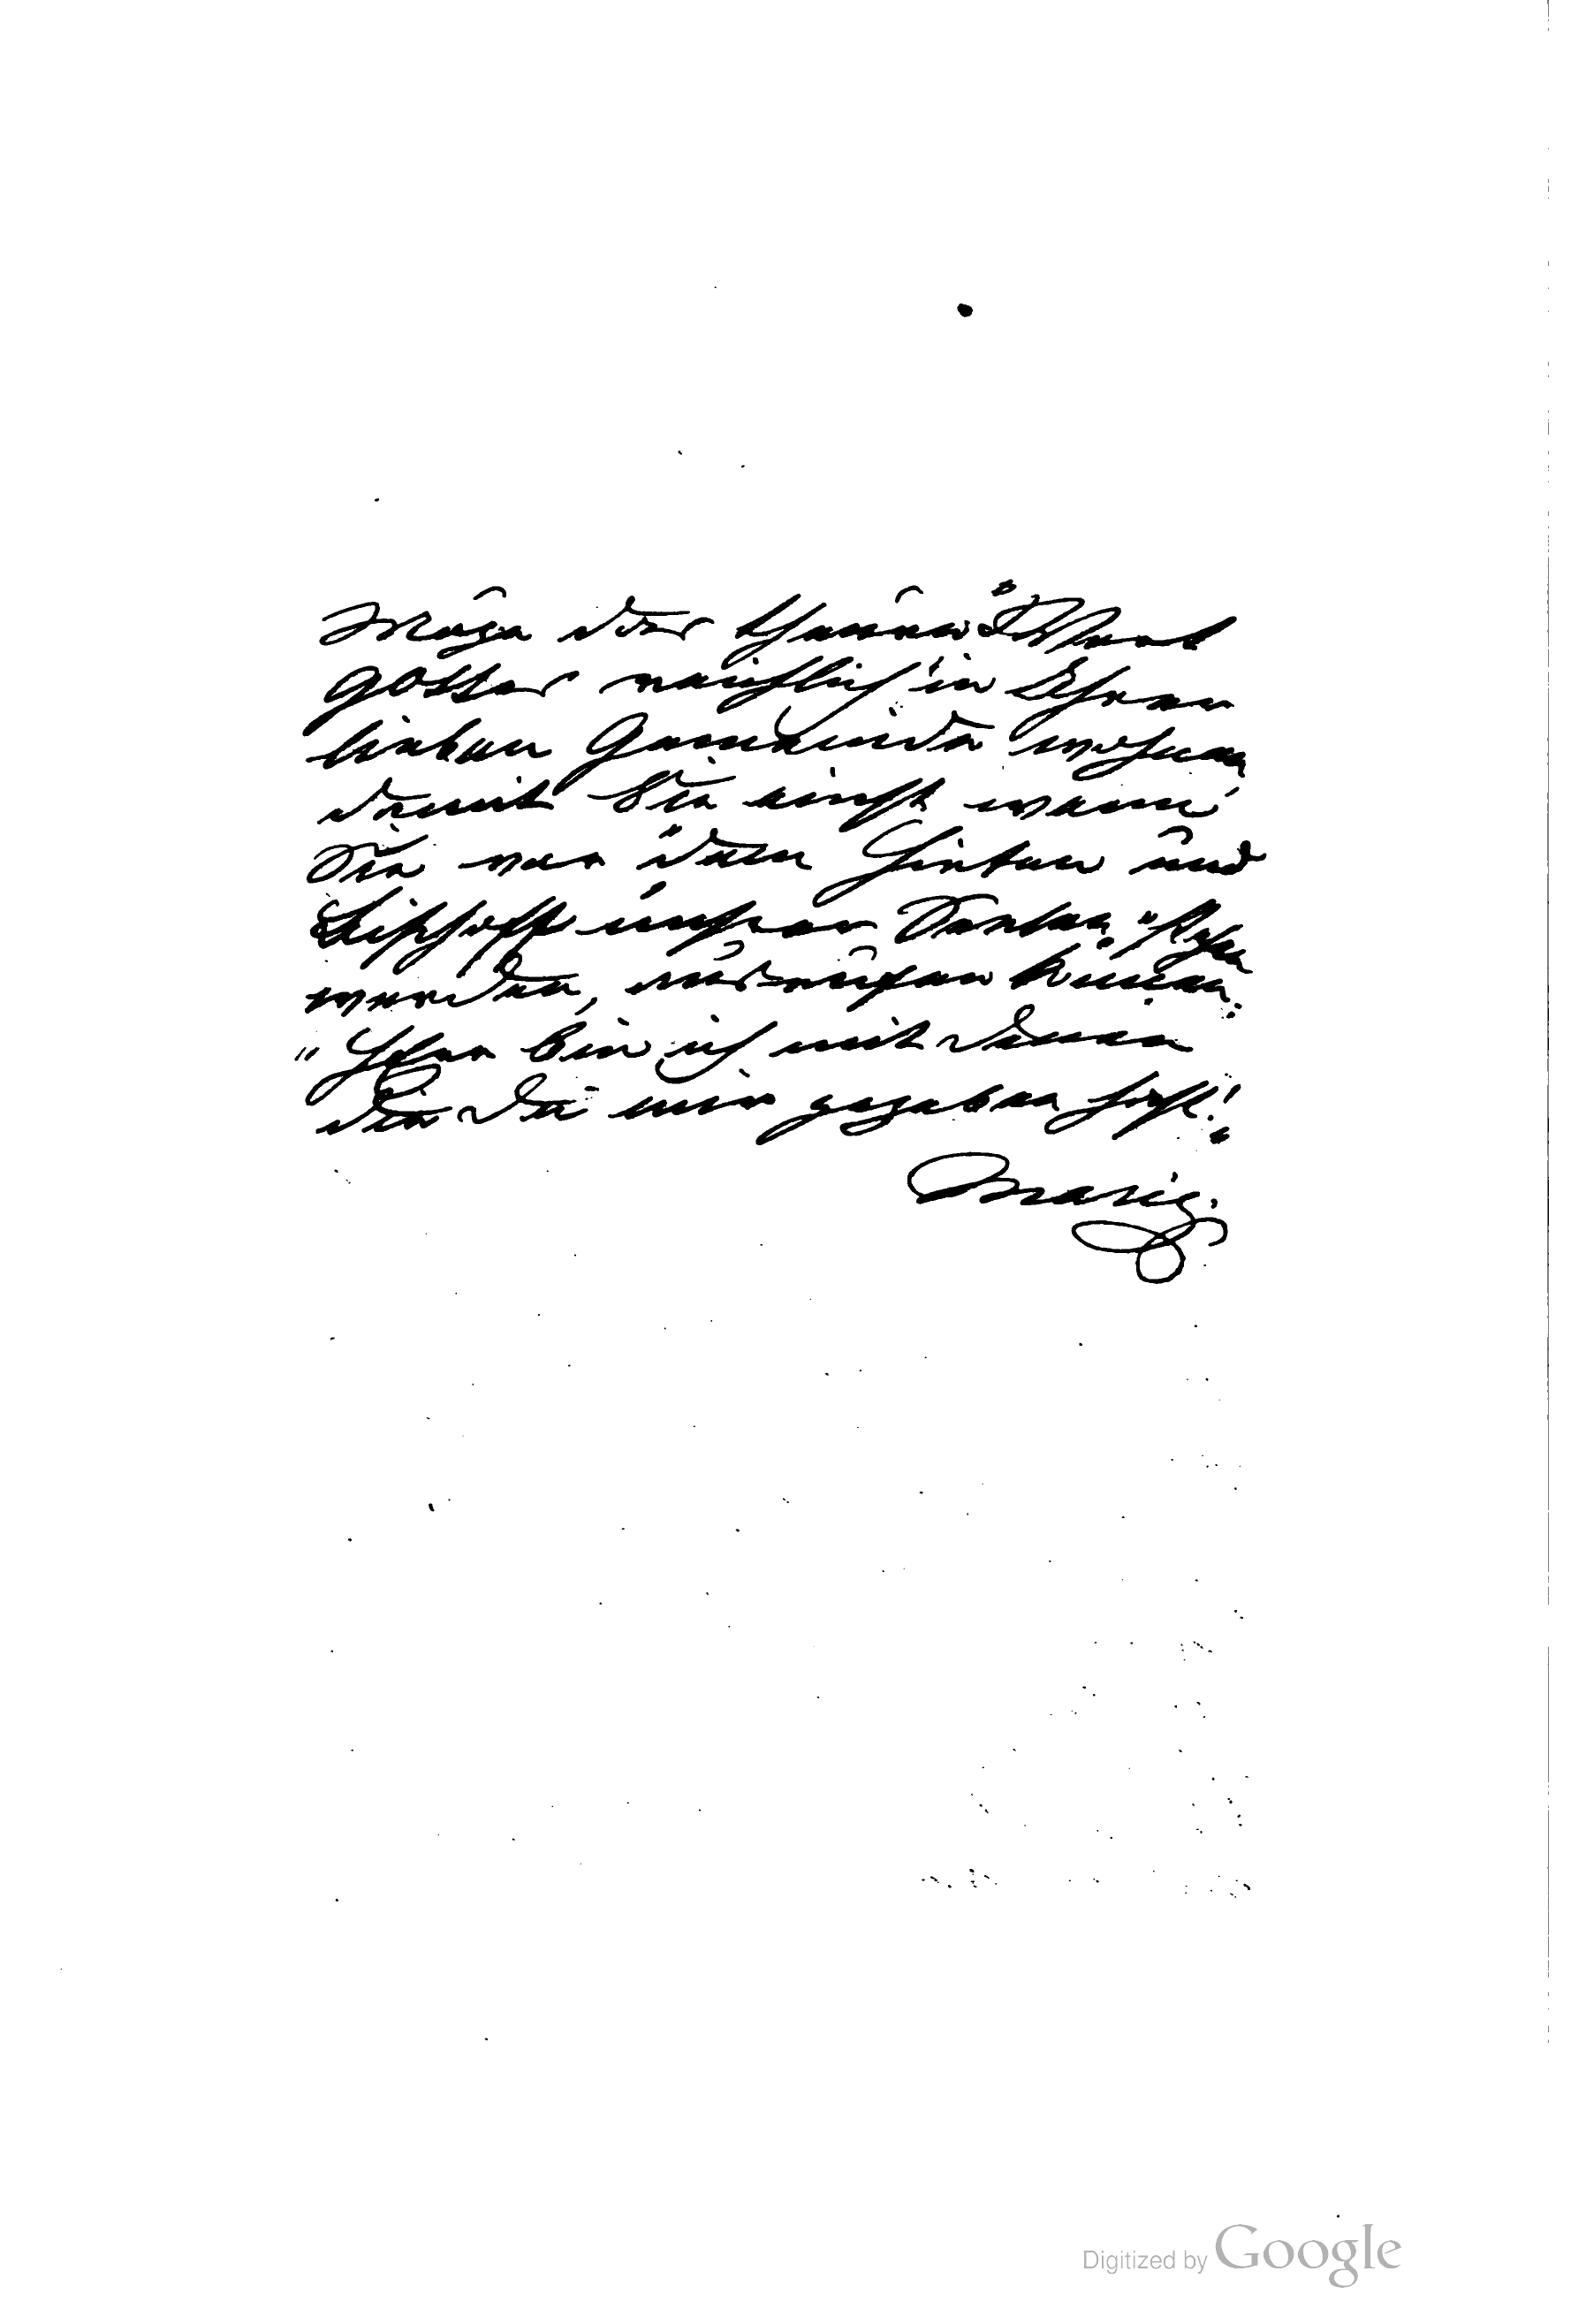 Möge das theüere Wort
Gottes reichlich in Ihrer
lieben Gemeinde wohnen
damit Sie einst wenn
Sie vor dem Hirten und
Bischoff unserer Seelen stehen
werden, ausrufen können:
"Herr hier bin ich mit denen
die Du mir gegeben hast!"
Marie.
Digitized by Google